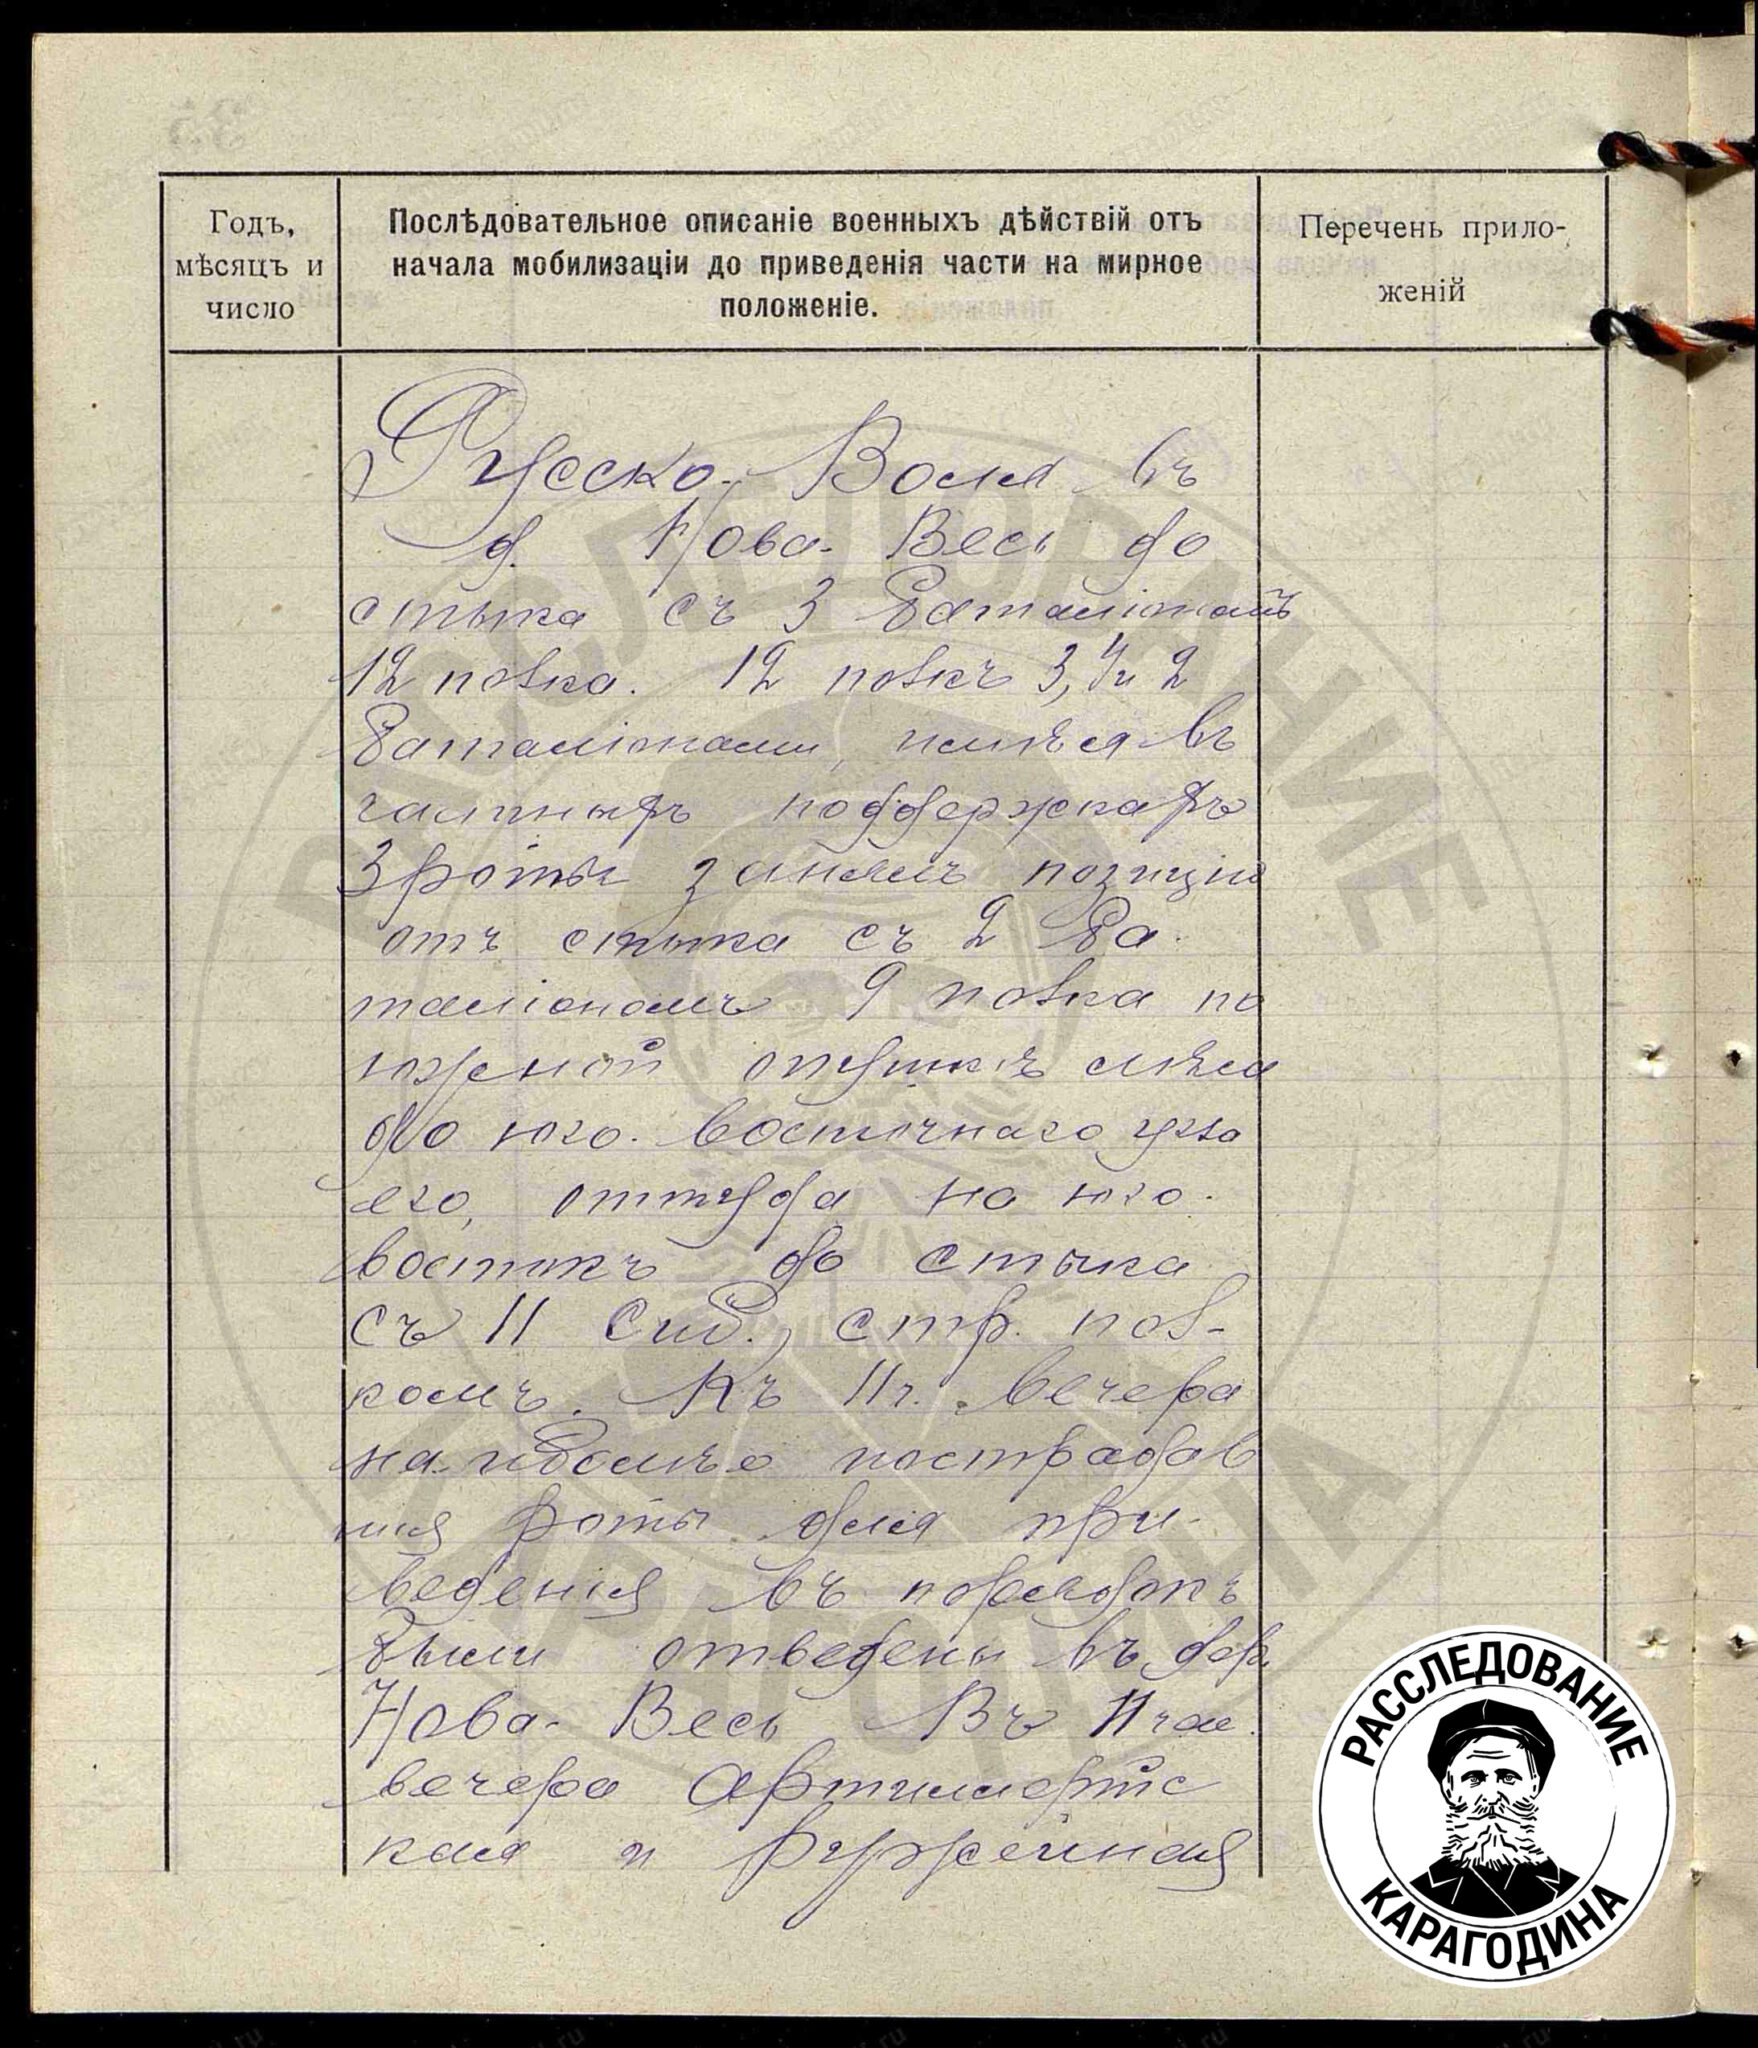 Годъ,
мѣсяцъ и
число
Послѣдовательное описаніе военныхъ дѣйствій отъ
начала мобилизаціи до приведенія части на мирное
положеніе.
Перечень прило-
женій
Русско-Воля въ
д. Нова-Весь до
стыка съ 3 баталіономъ
12 полка. 12 полкъ 3, 4 и 2
баталіонами, имѣя въ
частныхъ поддержкахъ
3 роты занялъ позицію
отъ стыка съ 2 ба-
таліономъ 9 полка по
южной опушкѣ лѣса
до юго-восточнаго угла
его, оттуда на юго-
востокъ до стыка
съ 11 Сиб. стр. пол-
комъ. Къ 11 ч. вечера
наиболѣе пострадав
шія роты для при-
веденія въ порядокъ
были отведены въ дер.
Нова-Весь. Въ 11 час.
вечера Артиллерійс
кая и ружейная
РАССЛЕДОВАНИЕ
КАРАГОДИНА
РАССЛЕДОВАНИЕ
КАРАГОДИНА